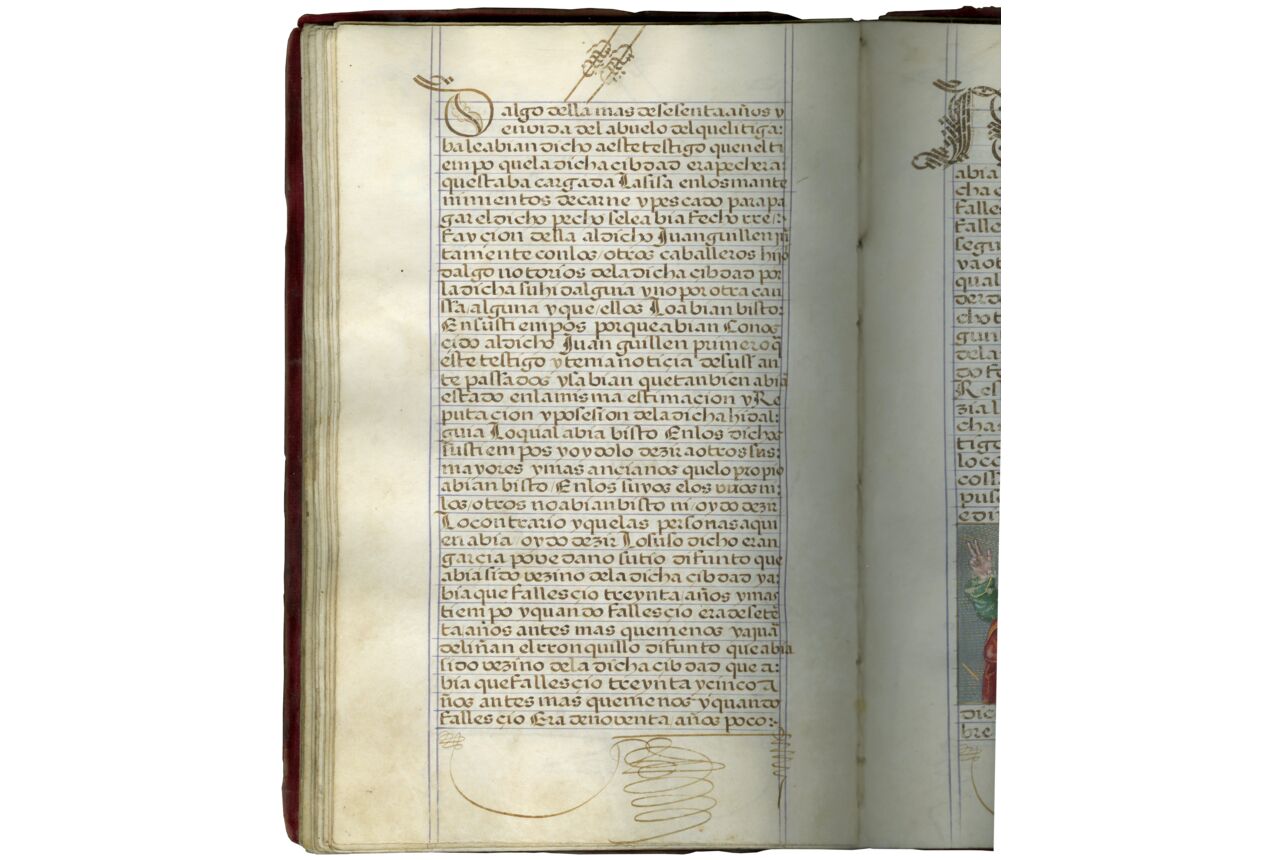 D algo della mas de sesenta años y
en vida del abuelo del que litiga:
ba le abian dicho a este testigo quen el ti
empo que la dicha cibdad era pechera:
questaba cargada La sisa en los mante
nimientos de carne y pescado para pa
gar el dicho pecho se le abia fecho rre:
faycion della al dicho Juan guillen ju
tamente con los/otros caballeros hijo
dalgo notorios de la dicha cibdad por
la dicha su hidalguia y no por otra cau
ssa/alguna y que/ellos Lo abian bisto:
En sus tiempos porque abian Conos
cido al dicho Juan guillen primero q
este testigo y tenia noticia de sus an
te passados y sabian que tanbien abia
estado en la misma estimacion y Re
putacion y posesion de la dicha hidal:
guia Lo qual abia bisto En los dichos
sus tiempos y oydolo dezir a otros sus:
mayores y mas ancianos que lo propio
abian bisto/En los suyos e los unos ni:
los/otros no abian bisto ni/oydo dezir
Lo contrario y que las personas a qui
en abia oydo dezir Lo suso dicho eran
garcia pobedano su tio difunto que
abia sido vezino de la dicha cibdad y a:
bia que fallescio treynta/años y mas
tiempo y quando fallescio era de sete
ta años antes mas que menos y a jua
de liñan el rronquillo difunto que abia
sido vezino de la dicha cibdad que a:
bia que fallescio treynta y cinco a
ños antes mas que menos y quando
fallescio Era de noventa años poco:-
abia
cha c
falles
falle
segu
va ot
qual
der d
cho t
gun
de la
do fe
Res
zia l
chas
tigo
lo co
coss
puse
e di
dic
bre